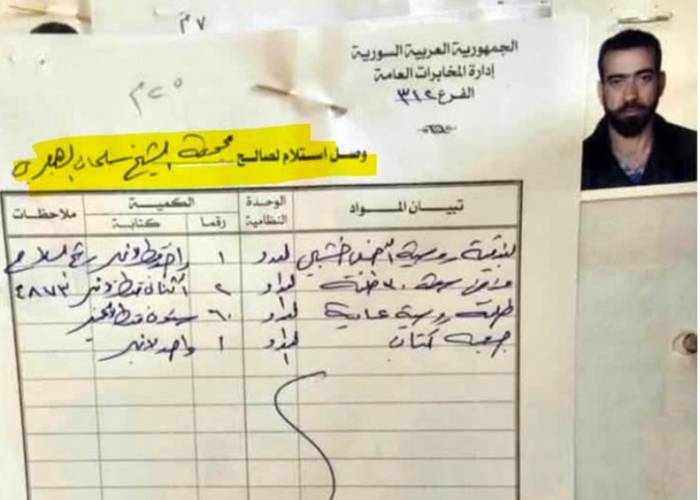 م ٧
الجمهورية العربية السورية
إدارة المخابرات العامة
الفرع ٣١٢
وصل استلام لصالح مجموعة الشيخ سلمان
تبيان المواد الوحدة النظامية الكمية رقما كتابة ملاحظات
بندقية روسية أخمص خشبي العدد ١ واحد فقط لا غير رقم السلاح
مخزن سعة ٣٠ طلقة العدد ٢ اثنان فقط لا غير ٤٨٧٣
طلقة روسية عادية العدد ٦٠ ستون فقط لا غير
جعبة كتان العدد ١ واحد لا غير